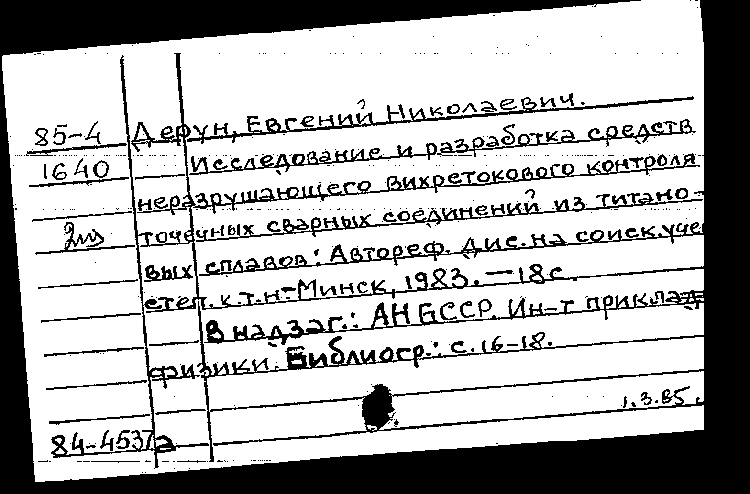 85-4 Дерун, Евгений Николаевич.
1640 Исследование и разработка средств
неразрушающего вихретокового контроля
2кз точечных сварных соединений из титано-
вых сплавов: Автореф. дис. на соиск. уче
степ. к.т.н. - Минск, 1983. — 18 с.
В надзаг.: АН БССР. Ин-т приклад
физики. Библиогр.: с. 16-18.
1.3.85.
84-4537а